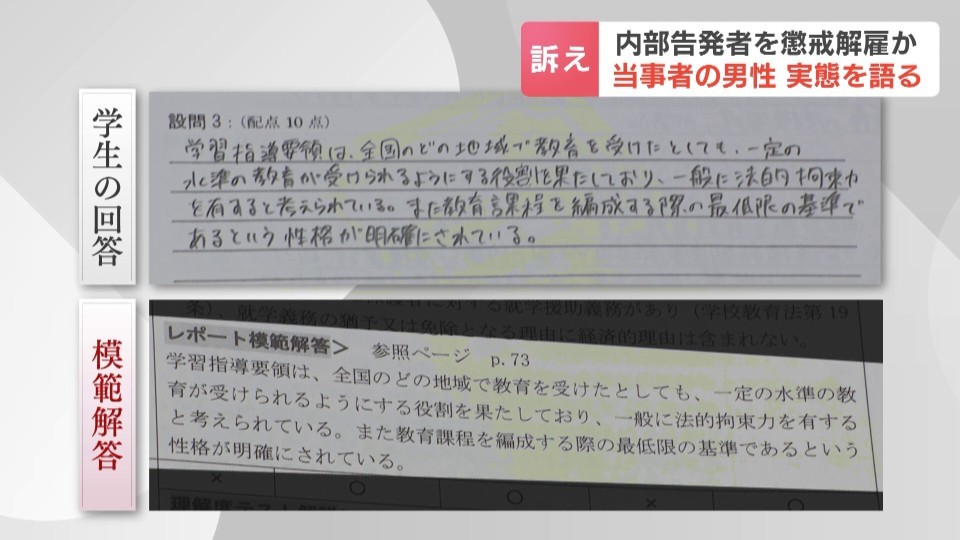 訴え
内部告発者を懲戒解雇か
当事者の男性 実態を語る
学生の回答
設問3:(配点 10 点)
学習指導要領は、全国のどの地域で教育を受けたとしても、一定の
水準の教育が受けられるようにする役割を果たしており、一般に法的拘束力
を有すると考えられている。また教育課程を編成する際の最低限の基準で
あるという性格が明確にされている。
模範解答
対する就学援助義務があり(学校教育法第 19
条)、就学義務の猶予又は免除となる理由に経済的理由は含まれない。
レポート模範解答> 参照ページ p.73
学習指導要領は、全国のどの地域で教育を受けたとしても、一定の水準の教
育が受けられるようにする役割を果たしており、一般に法的拘束力を有する
と考えられている。また教育課程を編成する際の最低限の基準であるという
性格が明確にされている。
× ○ ○ × ○
理解度テスト解答